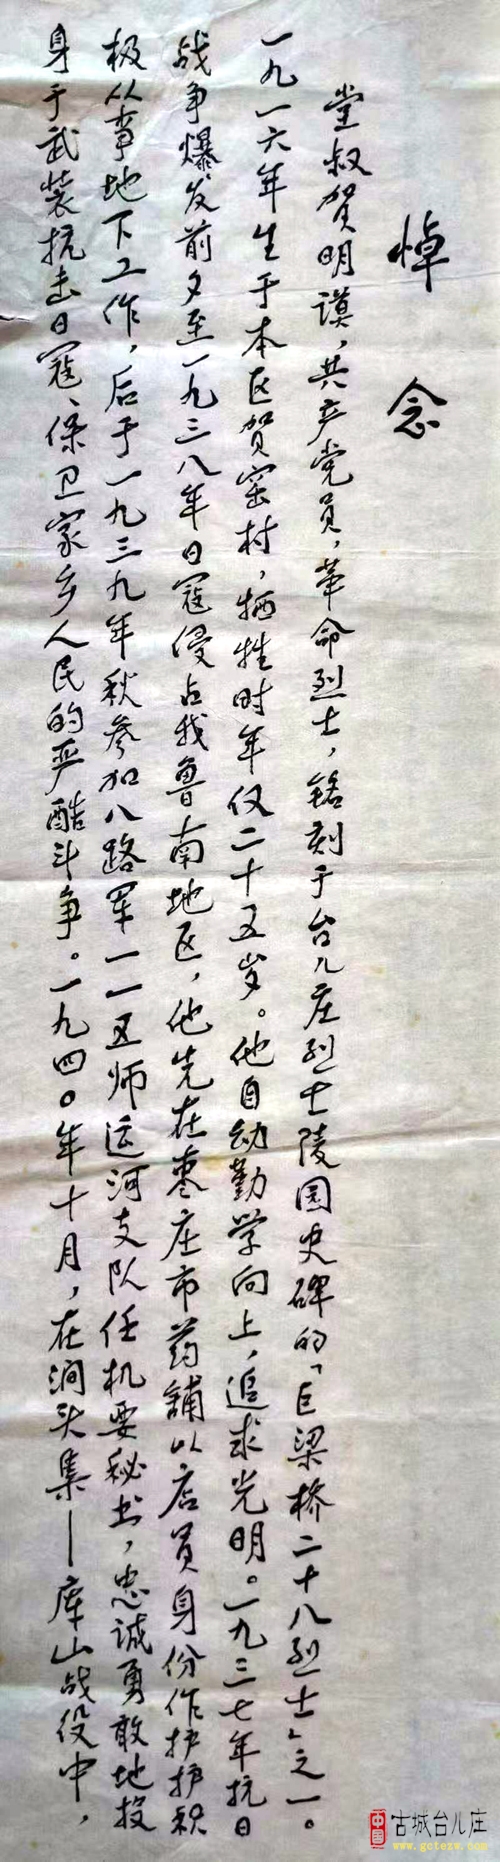 悼念
堂叔贺明谟，共产党员，革命烈士，铭刻于台儿庄烈士陵园史碑的「巨梁桥二十八烈士」之一。
一九一六年生于本区贺窑村，牺牲时年仅二十五岁。他自幼勤学向上，追求光明。一九三七年抗日
战争爆发前夕至一九三八年日寇侵占我鲁南地区，他先在枣庄市药铺以店员身份作护护积
极从事地下工作，后于一九三九年秋参加八路军一一五师运河支队任机要秘书，忠诚勇敢地投
身于武装抗击日寇、保卫家乡人民的严酷斗争。一九四〇年十月，在涧头集—库山战役中，
中国
古城台儿庄
www.gctezw.com